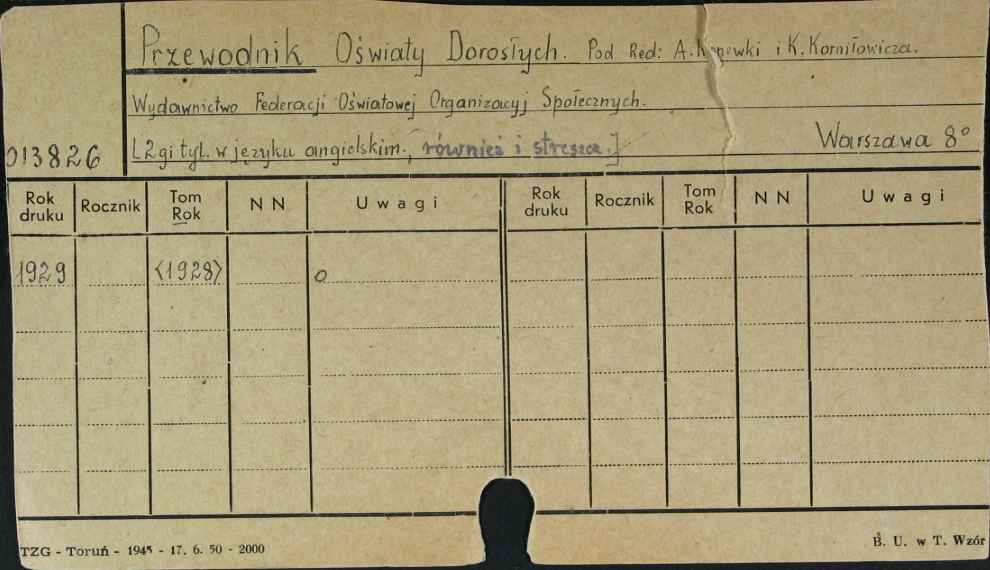 Przewodnik Oświaty Dorosłych. Pod Red: A. Konewki i K. Korniłowicza.
Wydawnictwo Federacji Oświatowej Organizacyj Społecznych.
013826 [2gi tyt. w języku angielskim., również i streszcz.] Warszawa 8°
Rok druku Rocznik Tom Rok NN Uwagi Rok druku Rocznik Tom Rok NN Uwagi
1929 <1928> o
TZG - Toruń - 1945 - 17. 6. 50 - 2000 B. U. w T. Wzór